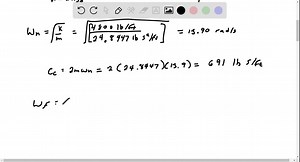 Wn = √k/m = √[480 0 lb/ft / 24.8947 lb s²/ft] = 13.90 rad/s
Cc = 2mwn = 2(24.8947)(13.9) = 691 lb s/ft
Wf =